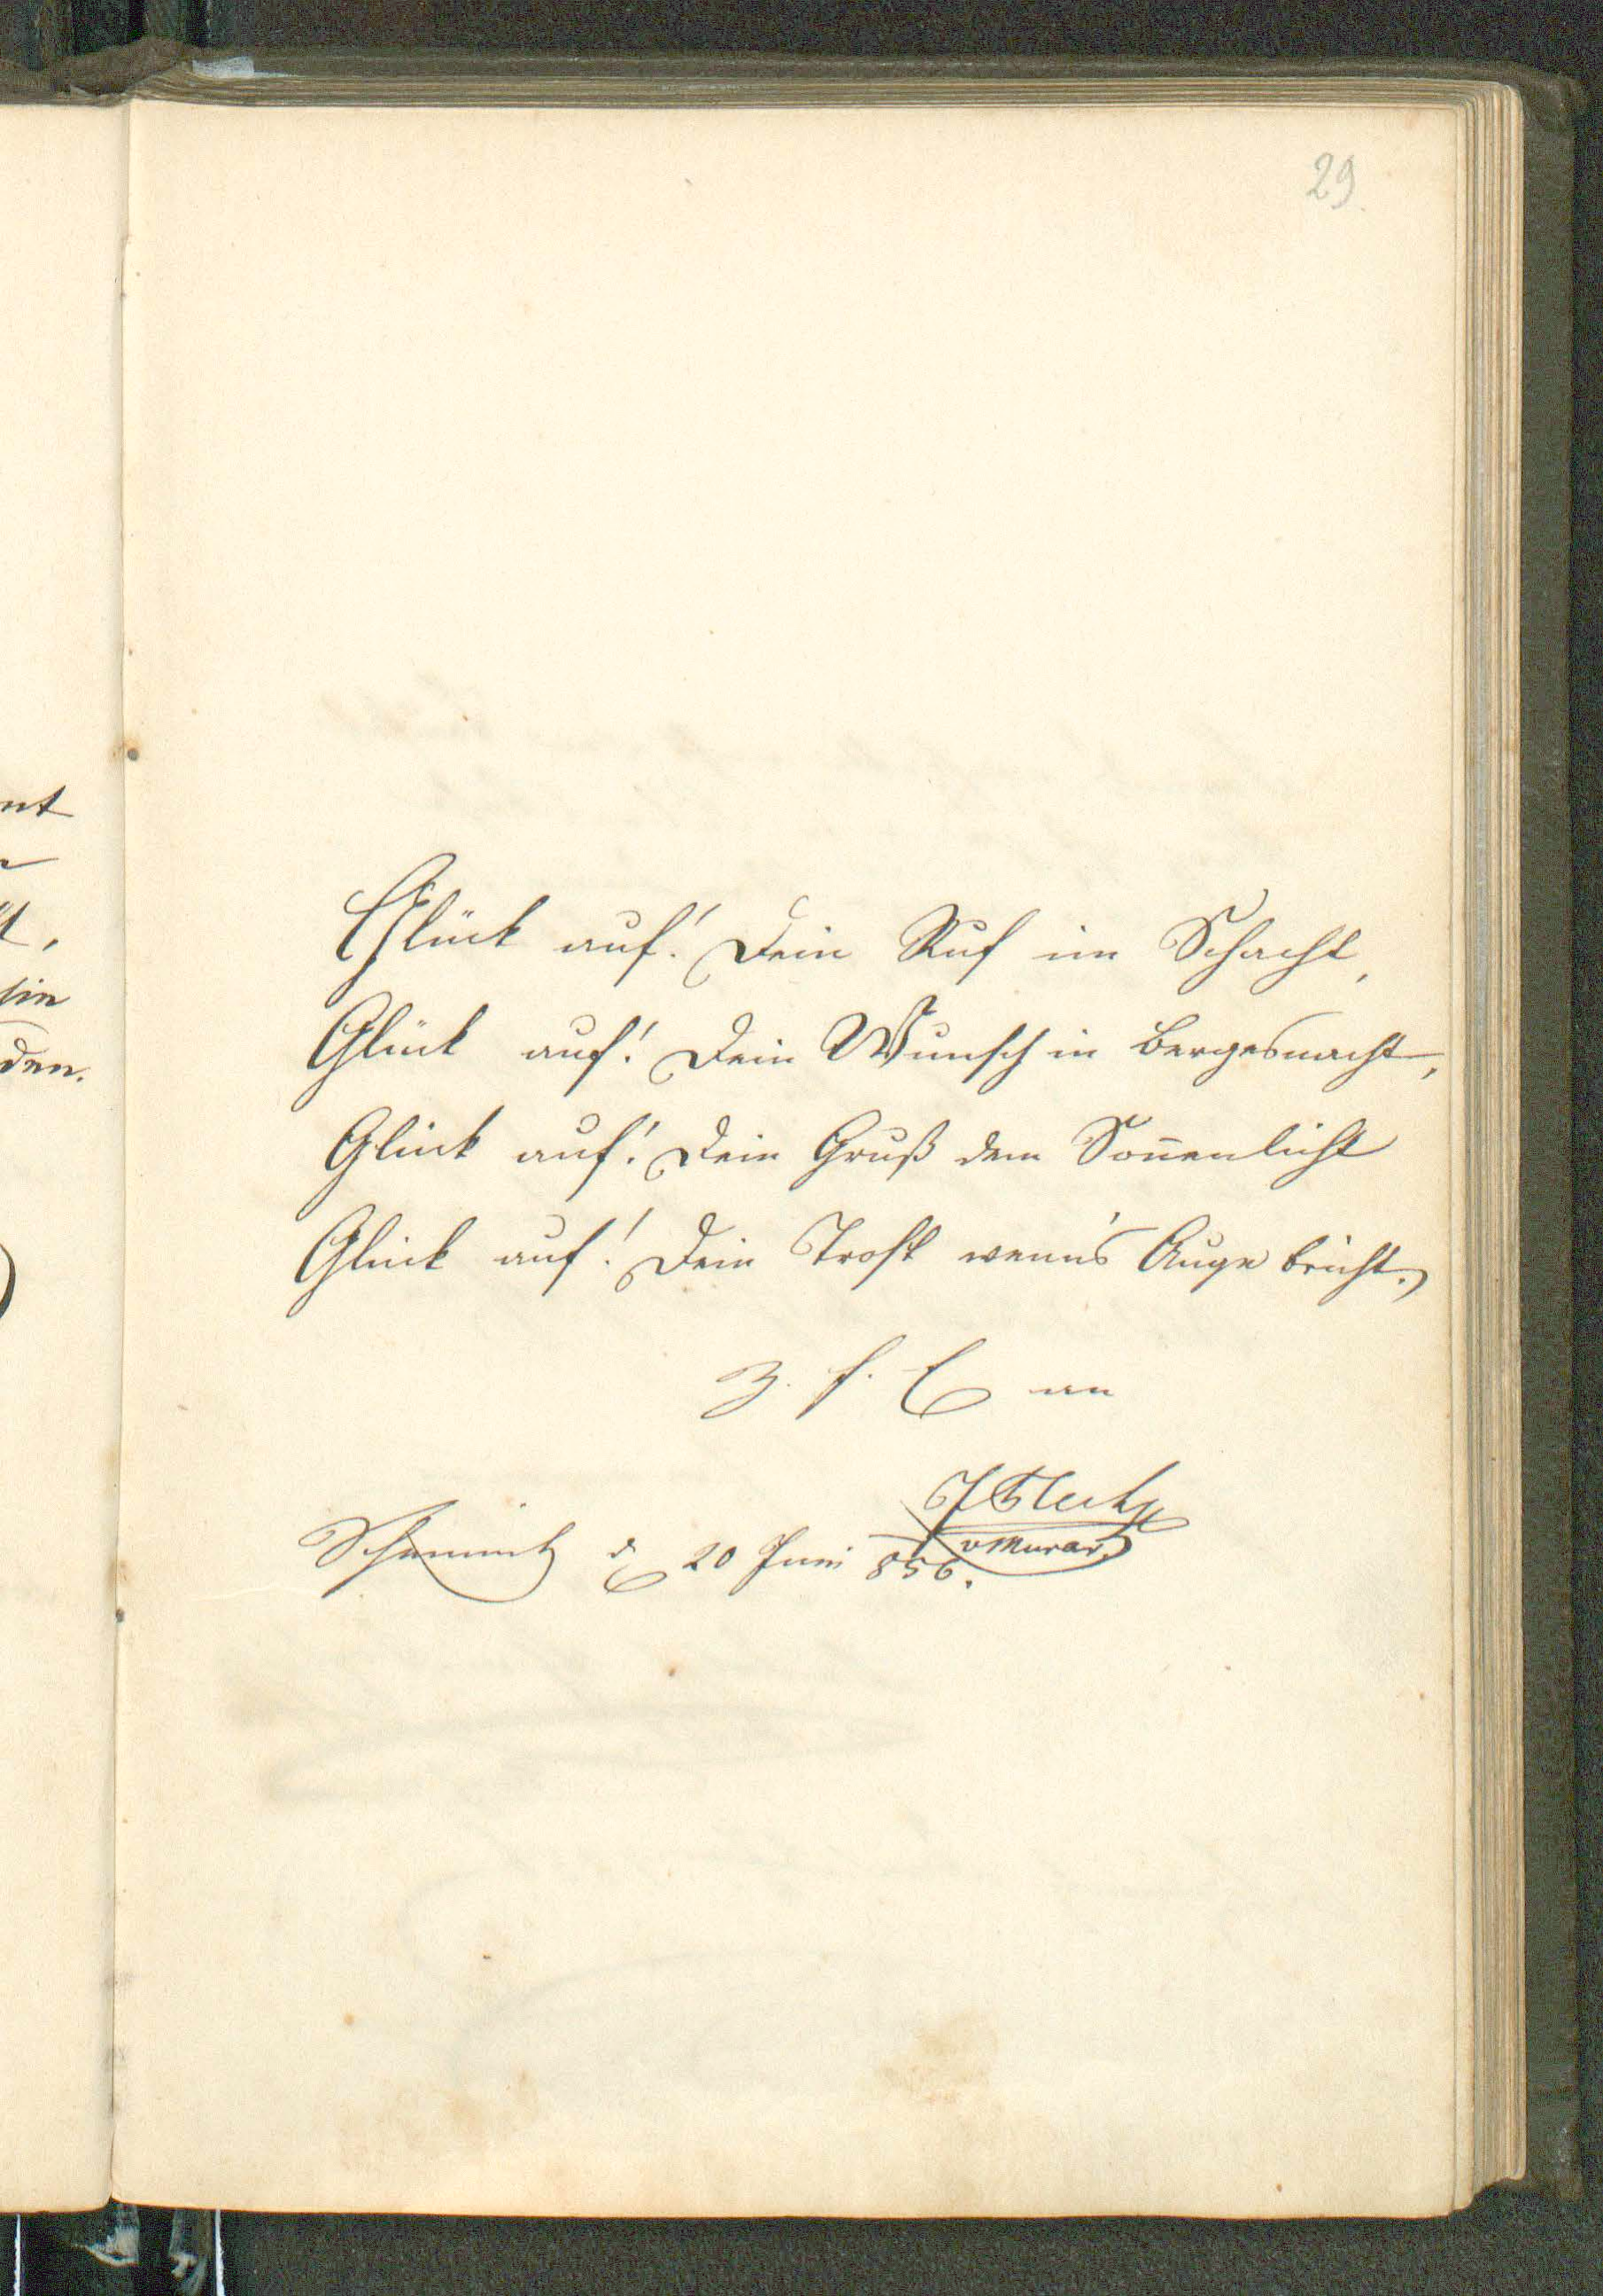 29
nt
den.
Glück auf! Dein Ruf im Schacht,
Glück auf! Dein Wunsch in Bergesnacht,
Glück auf! Dein Gruß dem Soñenlicht
Glück auf! Dein Trost wenn's Auge bricht.
Z. f. E an
Schemnitz d 20 Juni 856.